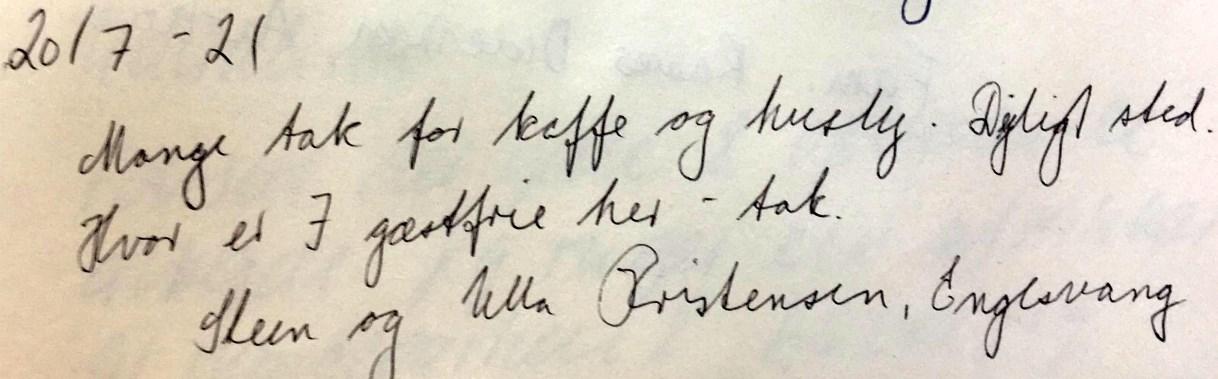 20/7 - 21
Mange tak for kaffe og husly. Dejligt sted.
Hvor er I gæstfrie her - tak.
Steen og Ulla Kristensen, Engesvang